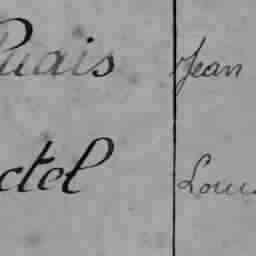 Quais Jean
ctel Louis